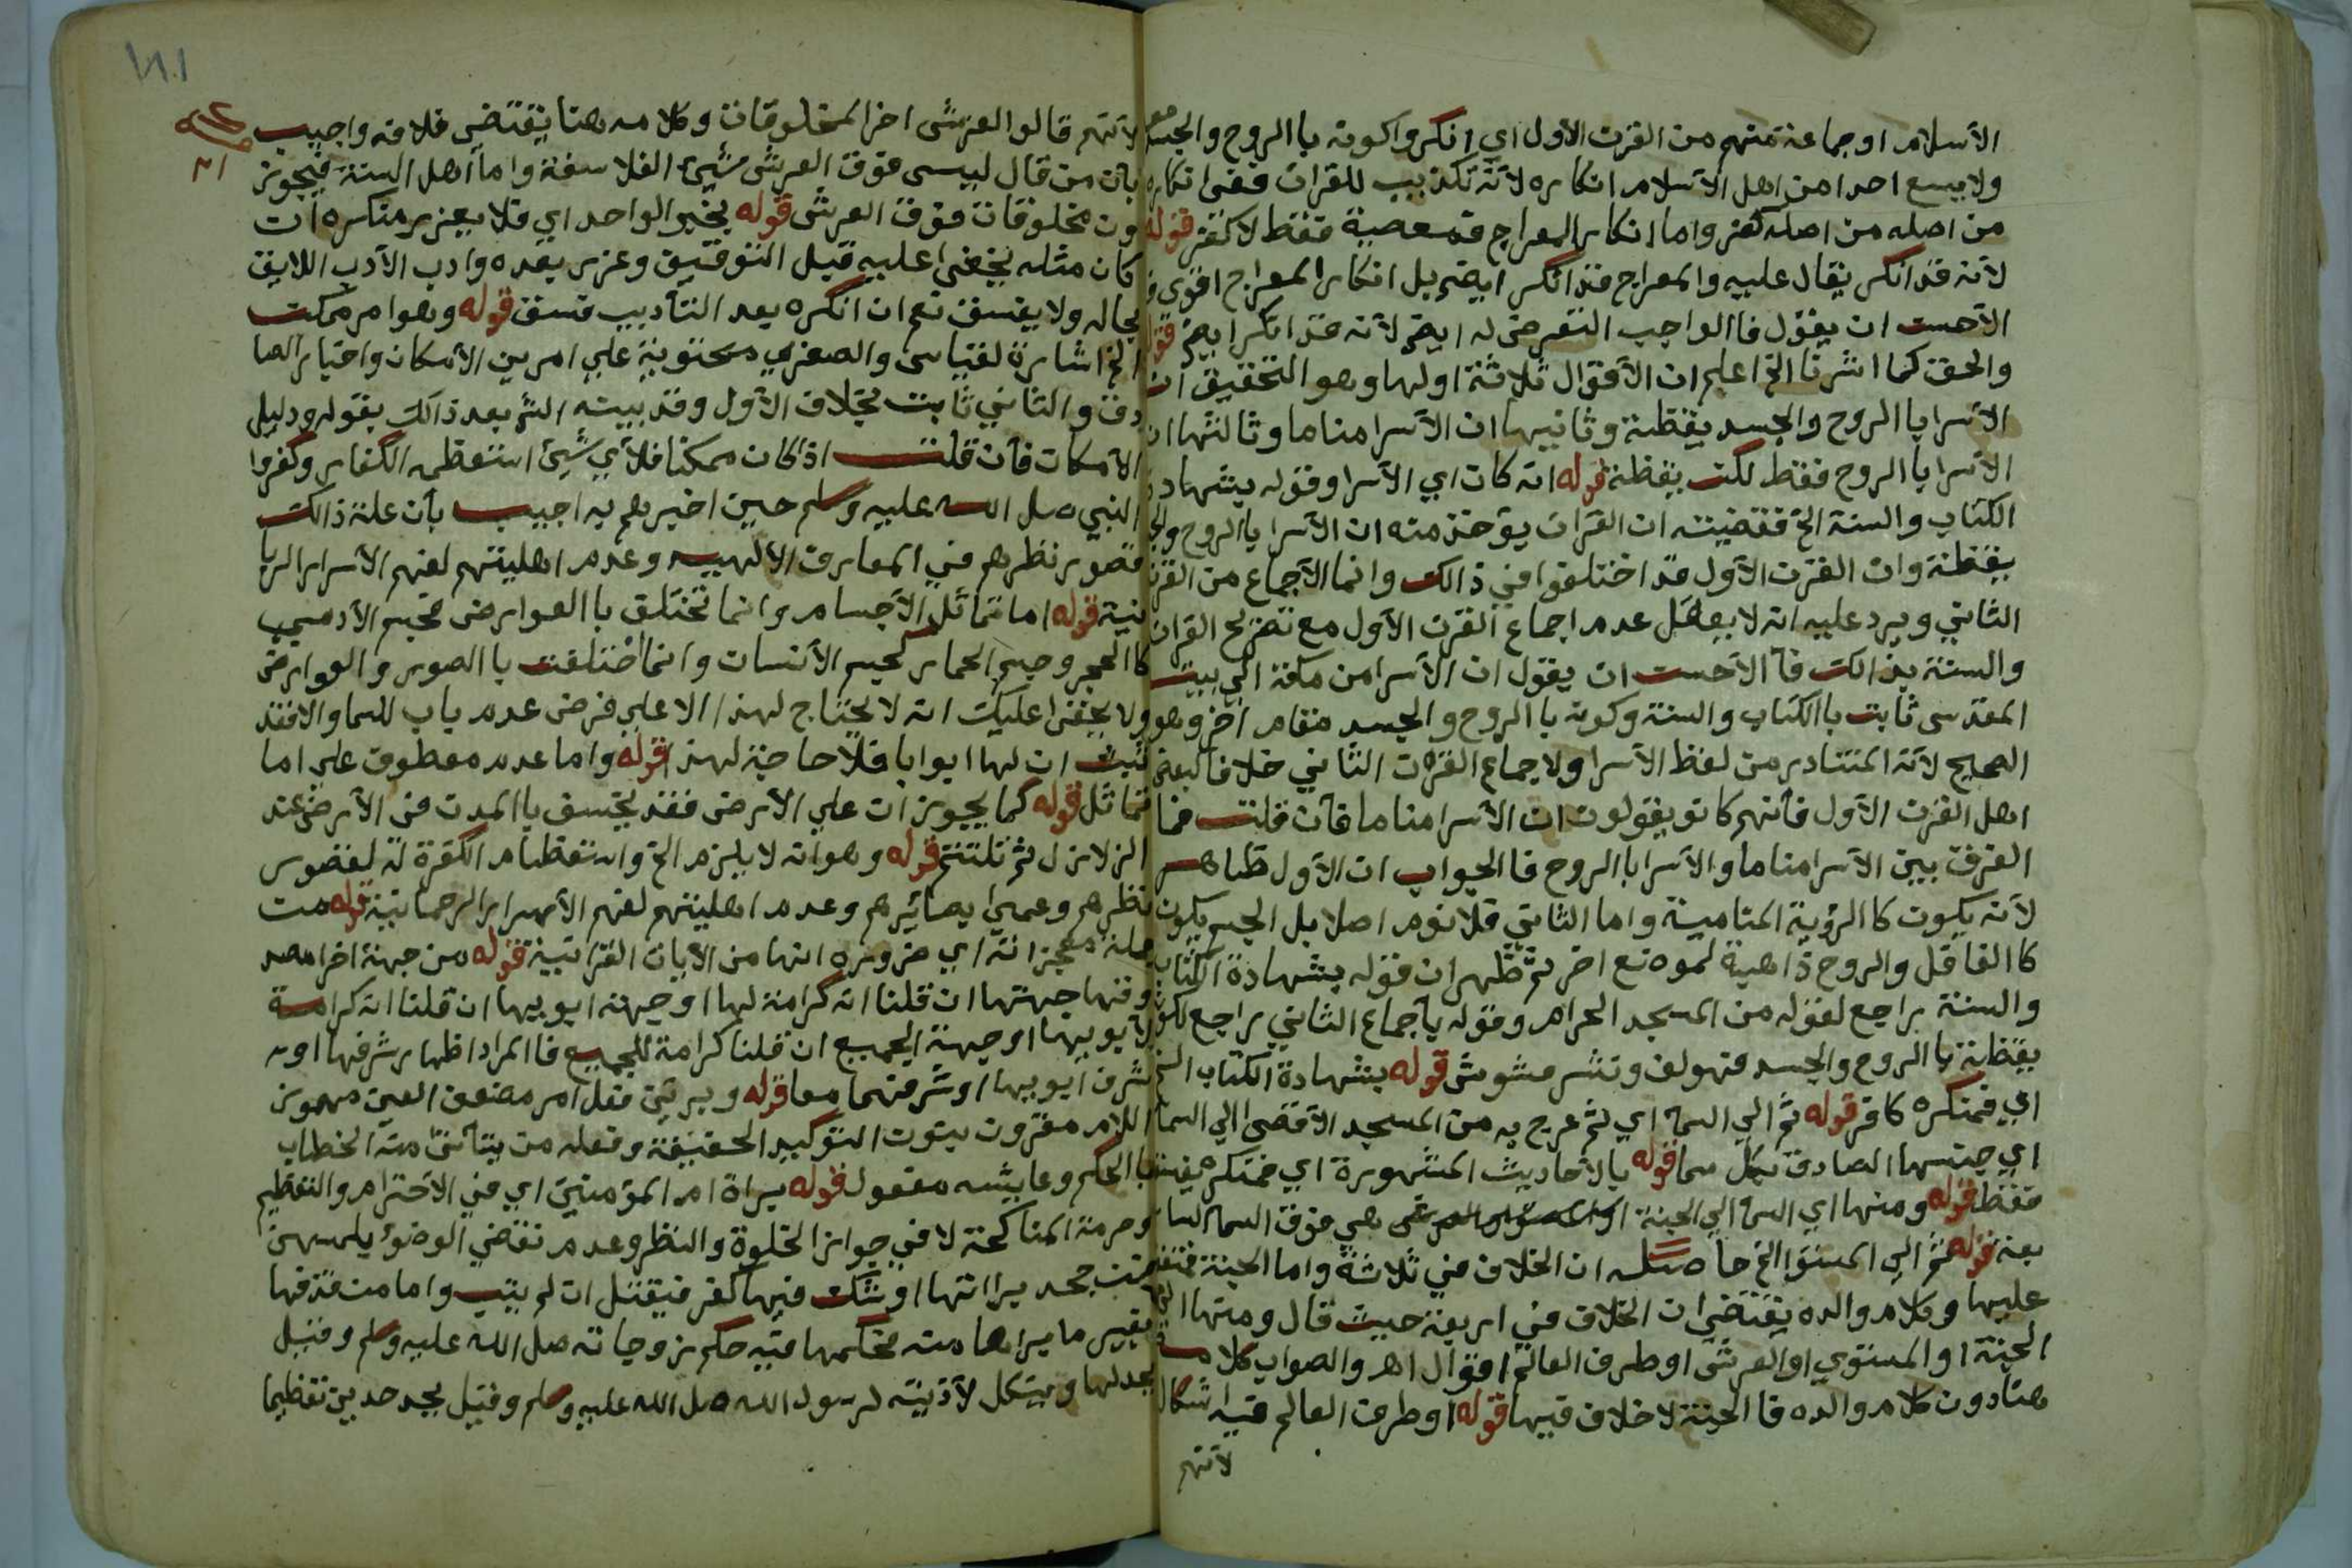 الآسلام اوجماعة منهم من القرن الآول اي انكرواكونه باالروح والجسد معا
ولايسع احدا من اهل الآسلام انكاره لآنه تكذيب للقران ففى انكاره
من اصله من اصله كفر واما انكار المعراج فمعصية فقط لاكفر قوله
لآنه قد انكر يقال عليه والمعراج قد انكر ايضم بل انكار المعراج اقوى
الآحسن ان يقول فاالواجب التعرض له ايضم لآنه قد انكر ايضم قوله
والحق كما اشرنا الخ اعلم ان الآقوال ثلاثة اولها وهو التحقيق ان
الآسرا باالروح والجسد يقظة وثانيها ان الآسرا مناما وثالثها ان
الآسرا باالروح فقط لكن يقظة قوله انه كان اي الآسرا وقوله بشهادة
الكتاب والسنة الخ فقضيته ان القران يؤخذ منه ان الآسرا باالروح والج
يقظة وان القرن الآول قد اختلفوا في ذالك وانما الآجماع من القرن
الثاني ويرد عليه انه لايعقل عدم اجماع القرن الآول مع تصريح القران
والسنة بذالك فآ الآحسن ان يقول ان الآسرا من مكة الي بيت
المقدس ثابت باالكتاب والسنة وكونه باالروح والجسد مقام اخر وهو
الصحيح لآنه المتبادر من لفظ الآسرا ولاجماع القرن الثاني خلافا لبعض
اهل القرن الآول فآنهم كانو يقولون ان الآسرا مناما فآن قلت فما
الفرق بين الآسرا مناما والآسرا باالروح فاالجواب ان الآول ظاهر
لآنه يكون كاالرؤية المنامية واما الثاني فلانوم اصلا بل الجسم يكون
كاالغافل والروح ذاهبة لموضع اخر ثم ظهر ان قوله بشهادة الكتاب
والسنة راجع لقوله من المسجد الحرام وقوله بآجماع الثاني راجع لكونه
يقظة باالروح والجسد فهولف ونشر مشوش قوله بشهادة الكتاب الخ
اي فمنكره كافر قوله ثم الي السما اي ثم عرج به من المسجد الآقصى الي السما
اي جنسها الصادق بكل سما قوله بالآحاديث المشهورة اي فمنكره يفسق
فقط قوله ومنها اي السما الي الجنة هي فوق السما السا
بعة قوله ثم الي المستوا الخ حاصله ان الخلاف في ثلاثة واما الجنة فمتفق
عليها وكلام والده يقتضي ان الخلاف في اربعة حيث قال ومنها الي
الجنة او المستوي او العرش او طرف العالم اقوال اهـ والصواب كلامه
هنا دون كلام والده فاالجنة لاخلاف فيها قوله اوطرف العالم فيه اشكال
لآنهم
١٨١
لآنهم قالو العرش اخر المخلوقات وكلامه هنا يقتضي خلافه واجيب
بآن من قال ليس فوق العرش شيئ الفلاسفة واما اهل السنة فيجوز
ون مخلوقات فوق العرش قوله بخبر الواحد اي فلايعزر منكره ان
كان مثله يخفى عليه قبل التوقيق وعزر بعده وادب الآدب اللايق
بحاله ولايفسق نعم ان انكره بعد التآديب فسق قوله وهوامر ممكن
الخ اشارة لقياس والصغري محتوية علي امرين الآمكان واخبار الصا
دق والثاني ثابت بخلاف الآول وقد بيته الش بعد ذالك بقوله ودليل
الآمكان فآن قلت اذاكان ممكنا فلآي شيئ استعظمه الكفار وكفروا
النبي صل الله عليه وسلم حين اخبرهم به اجيب بآن علة ذالك
قصور نظرهم في المعارف الآلهيه وعدم اهليتهم لفهم الآسرار الربا
نية قوله اما تماثل الآجسام وانما تختلق باالعوارض فجسم الآدمي
كاالحجر وجسم الحمار كجسم الآنسان وانما اختلفت باالصور والعوارض
ولايخفى عليك انه لايحتاج لهذا الا علي فرض عدم باب للسما والافقد
ثبت ان لها ابوابا فلاحاجة لهذا قوله واما عدم معطوف علي اما
تماثل قوله كما يجوز ان علي الآرض فقد يخسف باالمدن في الآرض عند
الزلازل ثم تلتئم قوله وهوانه لايلزم الخ واستعظام الكفرة له لقصور
نظرهم وعمى بصائرهم وعدم اهليتهم لفهم الآسرار الرحمانية قوله من
جملة معجزاته اي ضرورة انها من الآيات القرانية قوله من جهة اخرا
وفنها جهتها ان قلنا انه كرامة لها اوجهة ابويها ان قلنا انه كرامة
لآبويها اوجهة الجميع ان قلنا كرامة للجميع فاالمراد اظهار شرفها او
شرف ابويها اوشرفهما معا قوله وبرئن فعل امر مضعف العين مهموز
اللام مقرون بنون التوكيد الحقيقة وفعله من يتآتى منه الخطاب
باالحكم وعايشه مفعول قوله براة ام المؤمنين اي في الآحترام والتعظيم
وحرمة المناكحة لافي جواز الخلوة والنظر وعدم نقض الوضوء بلمسهن
فمن جحد براتها اوشك فيها كفر فيقتل ان لم يتب واما من قذفها
بغير ما براها منه فحكمها فيه حكم زوجاته صل الله عليه وسلم وقيل
يحد لها وينكل لآذيته لرسول الله صل الله عليه وسلم وقيل يحد حدين تعظيما